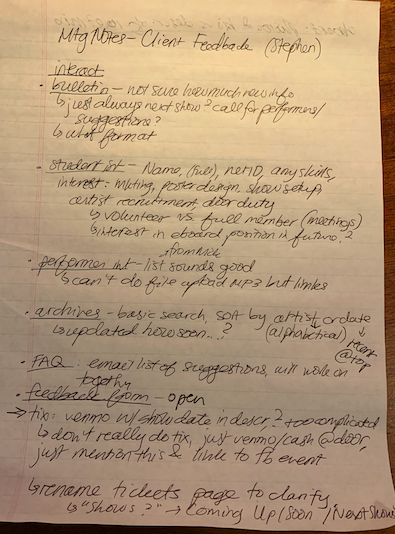 Mtg Notes - Client Feedback (Stephen)
interact
• bulletin - not sure how much new info
↳ just always next show? call for performers/
suggestions?
↳ what format
• student int - Name, (full), netID, any skills,
interest: mkting, poster design, show setup,
artist recruitment, door duty
↳ volunteer vs full member (meetings)
↳ interest in eboard position in future?
→ from Nick
• performer int - list sounds good
↳ can't do file upload MP3 but links
• archives - basic search, sort by artist or date
(alphabetical) recent
↳ updated how soon..? @ top
• FAQ - email list of suggestions, will work on
together
• feedback form - open
→ tix: venmo w/ show date in descr.? too complicated
↳ don't really do tix, just venmo/cash @ door,
just mention this & link to fb event
↳ rename tickets page to clarify
↳ "shows?" → Coming Up/Soon/Next Show